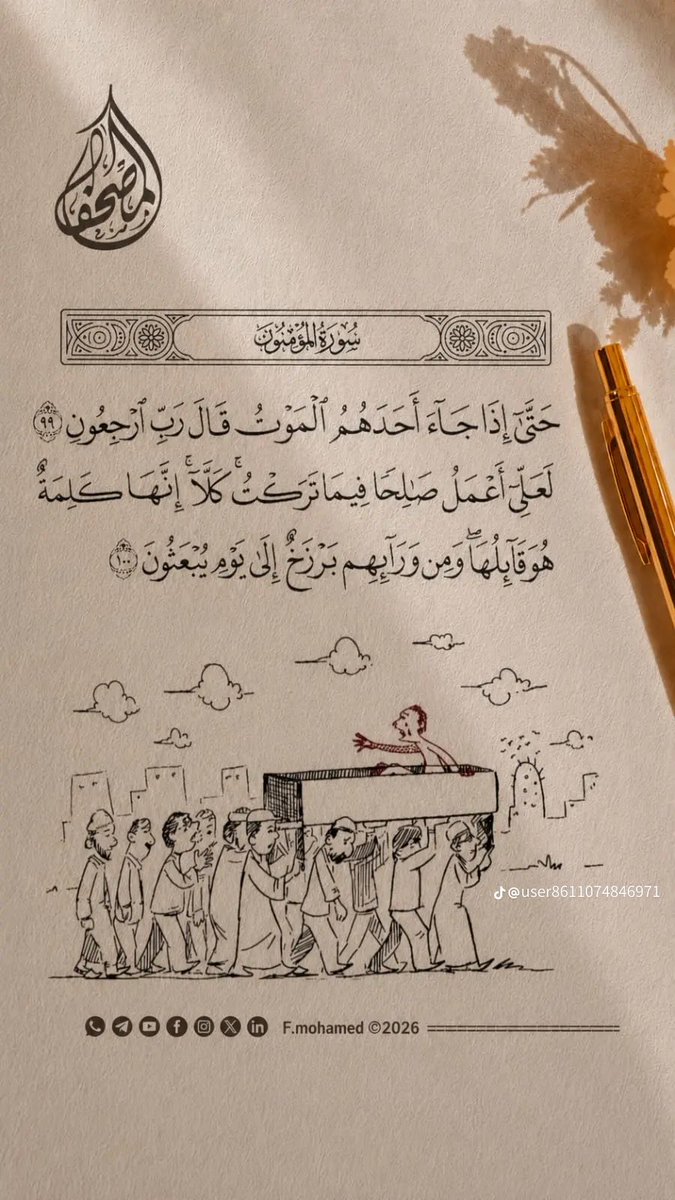 المصحف
سُورَةُ المُؤْمِنُونَ
حَتَّىٰٓ إِذَا جَآءَ أَحَدَهُمُ ٱلْمَوْتُ قَالَ رَبِّ ٱرْجِعُونِ ٩٩
لَعَلِّىٓ أَعْمَلُ صَٰلِحًا فِيمَا تَرَكْتُ ۚ كَلَّآ ۚ إِنَّهَا كَلِمَةٌ
هُوَ قَآئِلُهَا ۖ وَمِن وَرَآئِهِم بَرْزَخٌ إِلَىٰ يَوْمِ يُبْعَثُونَ ١٠٠
@user8611074846971
F.mohamed ©2026